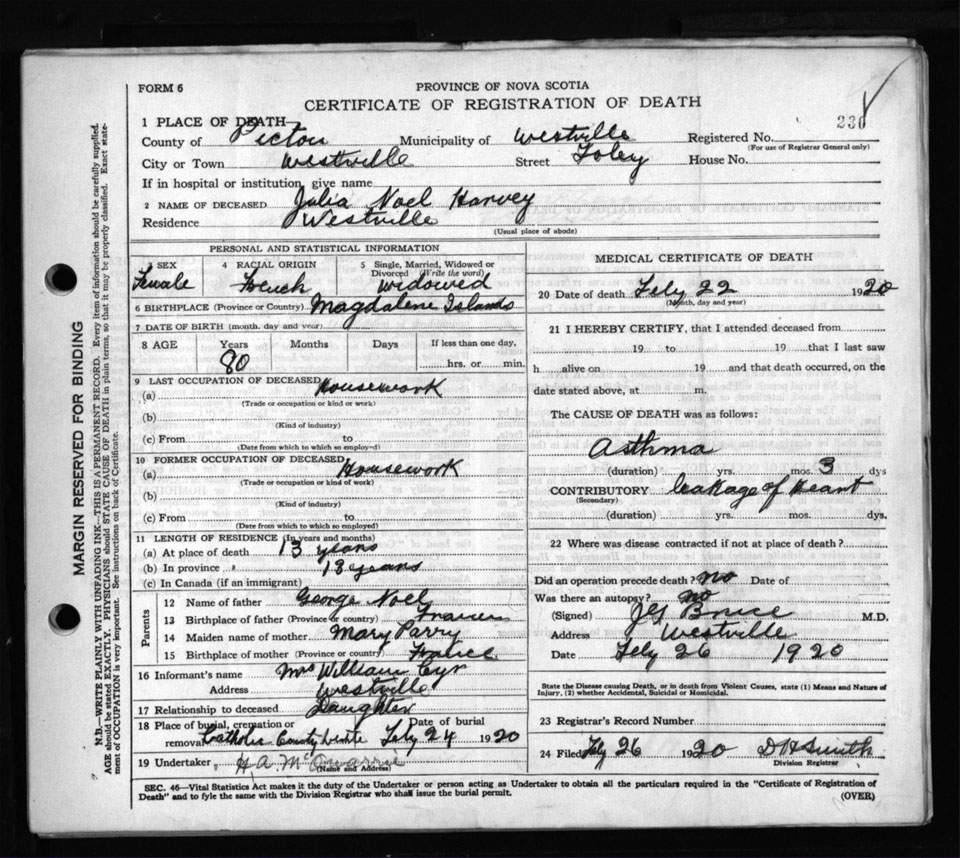 FORM 6
PROVINCE OF NOVA SCOTIA
CERTIFICATE OF REGISTRATION OF DEATH
1 PLACE OF DEATH—
County of Pictou Municipality of Westville Registered No. 230
(For use of Registrar General only)
City or Town Westville Street Foley House No.
If in hospital or institution, give name
2 NAME OF DECEASED Julia Noel Harvey
Residence Westville
(Usual place of abode)
PERSONAL AND STATISTICAL INFORMATION
3 SEX 4 RACIAL ORIGIN 5 Single, Married, Widowed or Divorced (Write the word)
Female French widowed
6 BIRTHPLACE (Province or Country) Magdalene Islands
7 DATE OF BIRTH (month, day and year)
8 AGE Years Months Days If less than one day,
80 hrs. or min.
9 LAST OCCUPATION OF DECEASED
(a) Housework
(Trade or occupation or kind of work)
(b)
(Kind of industry)
(c) From to
(Date from which to which so employed)
10 FORMER OCCUPATION OF DECEASED
(a) Housework
(Trade or occupation or kind of work)
(b)
(Kind of industry)
(c) From to
(Date from which to which so employed)
11 LENGTH OF RESIDENCE (In years and months)
(a) At place of death 13 years
(b) In province " 13 years
(c) In Canada (if an immigrant)
Parents
12 Name of father George Noel
13 Birthplace of father (Province or country)
14 Maiden name of mother Mary Parry
15 Birthplace of mother (Province or country) France
16 Informant's name Mrs William Cyr
Address Westville
17 Relationship to deceased Daughter
18 Place of burial, cremation or removal Catholic Date of burial Feby 24 1920
19 Undertaker H. A.
(Name and Address)
MEDICAL CERTIFICATE OF DEATH
20 Date of death Feby 22 1920
(Month, day and year)
21 I HEREBY CERTIFY, that I attended deceased from
19 to 19 that I last saw
h alive on 19 and that death occurred, on the
date stated above, at m.
The CAUSE OF DEATH was as follows:
Asthma
(duration) yrs. mos. 3 dys
CONTRIBUTORY leakage of heart
(Secondary)
(duration) yrs. mos. dys.
22 Where was disease contracted if not at place of death?
Did an operation precede death? no Date of
Was there an autopsy? no
(Signed) Bruce M.D.
Address Westville
Date Feby 26 1920
State the Disease causing Death, or in death from Violent Causes, state (1) Means and Nature of
Injury, (2) whether Accidental, Suicidal or Homicidal.
23 Registrar's Record Number
24 Filed Feby 26 1920 D H Smith
Division Registrar
SEC. 46—Vital Statistics Act makes it the duty of the Undertaker or person acting as Undertaker to obtain all the particulars required in the "Certificate of Registration of
Death" and to fyle the same with the Division Registrar who shall issue the burial permit.
(OVER)
MARGIN RESERVED FOR BINDING
N.B.—WRITE PLAINLY WITH UNFADING INK—THIS IS A PERMANENT RECORD. Every item of information should be carefully supplied.
AGE should be stated EXACTLY. PHYSICIANS should STATE CAUSE OF DEATH in plain terms, so that it may be properly classified. Exact state-
ment of OCCUPATION is very important. See instructions on back of Certificate.